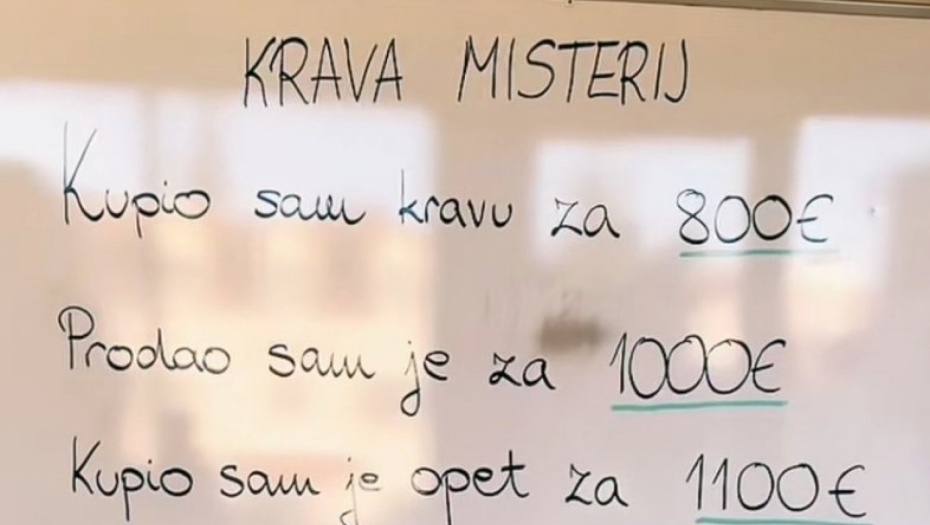 KRAVA MISTERIJ
Kupio sam kravu za 800€
Prodao sam je za 1000€
Kupio sam je opet za 1100€